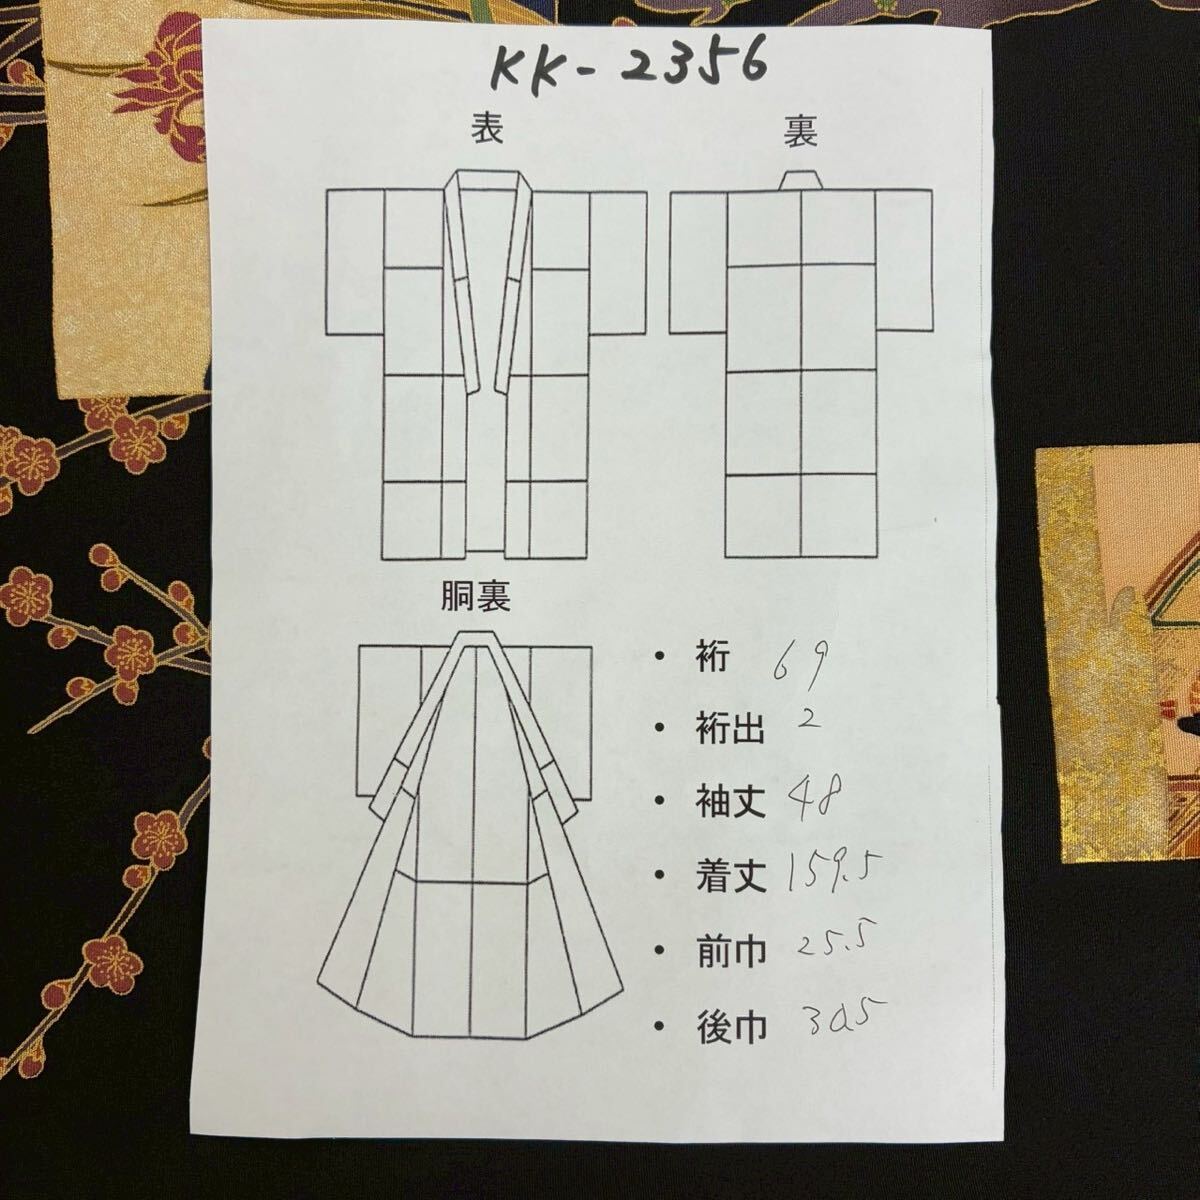 KK-2356
表
裏
胴裏
・ 裄 69
・ 裄出 2
・ 袖丈 48
・ 着丈 159.5
・ 前巾 25.5
・ 後巾 30.5